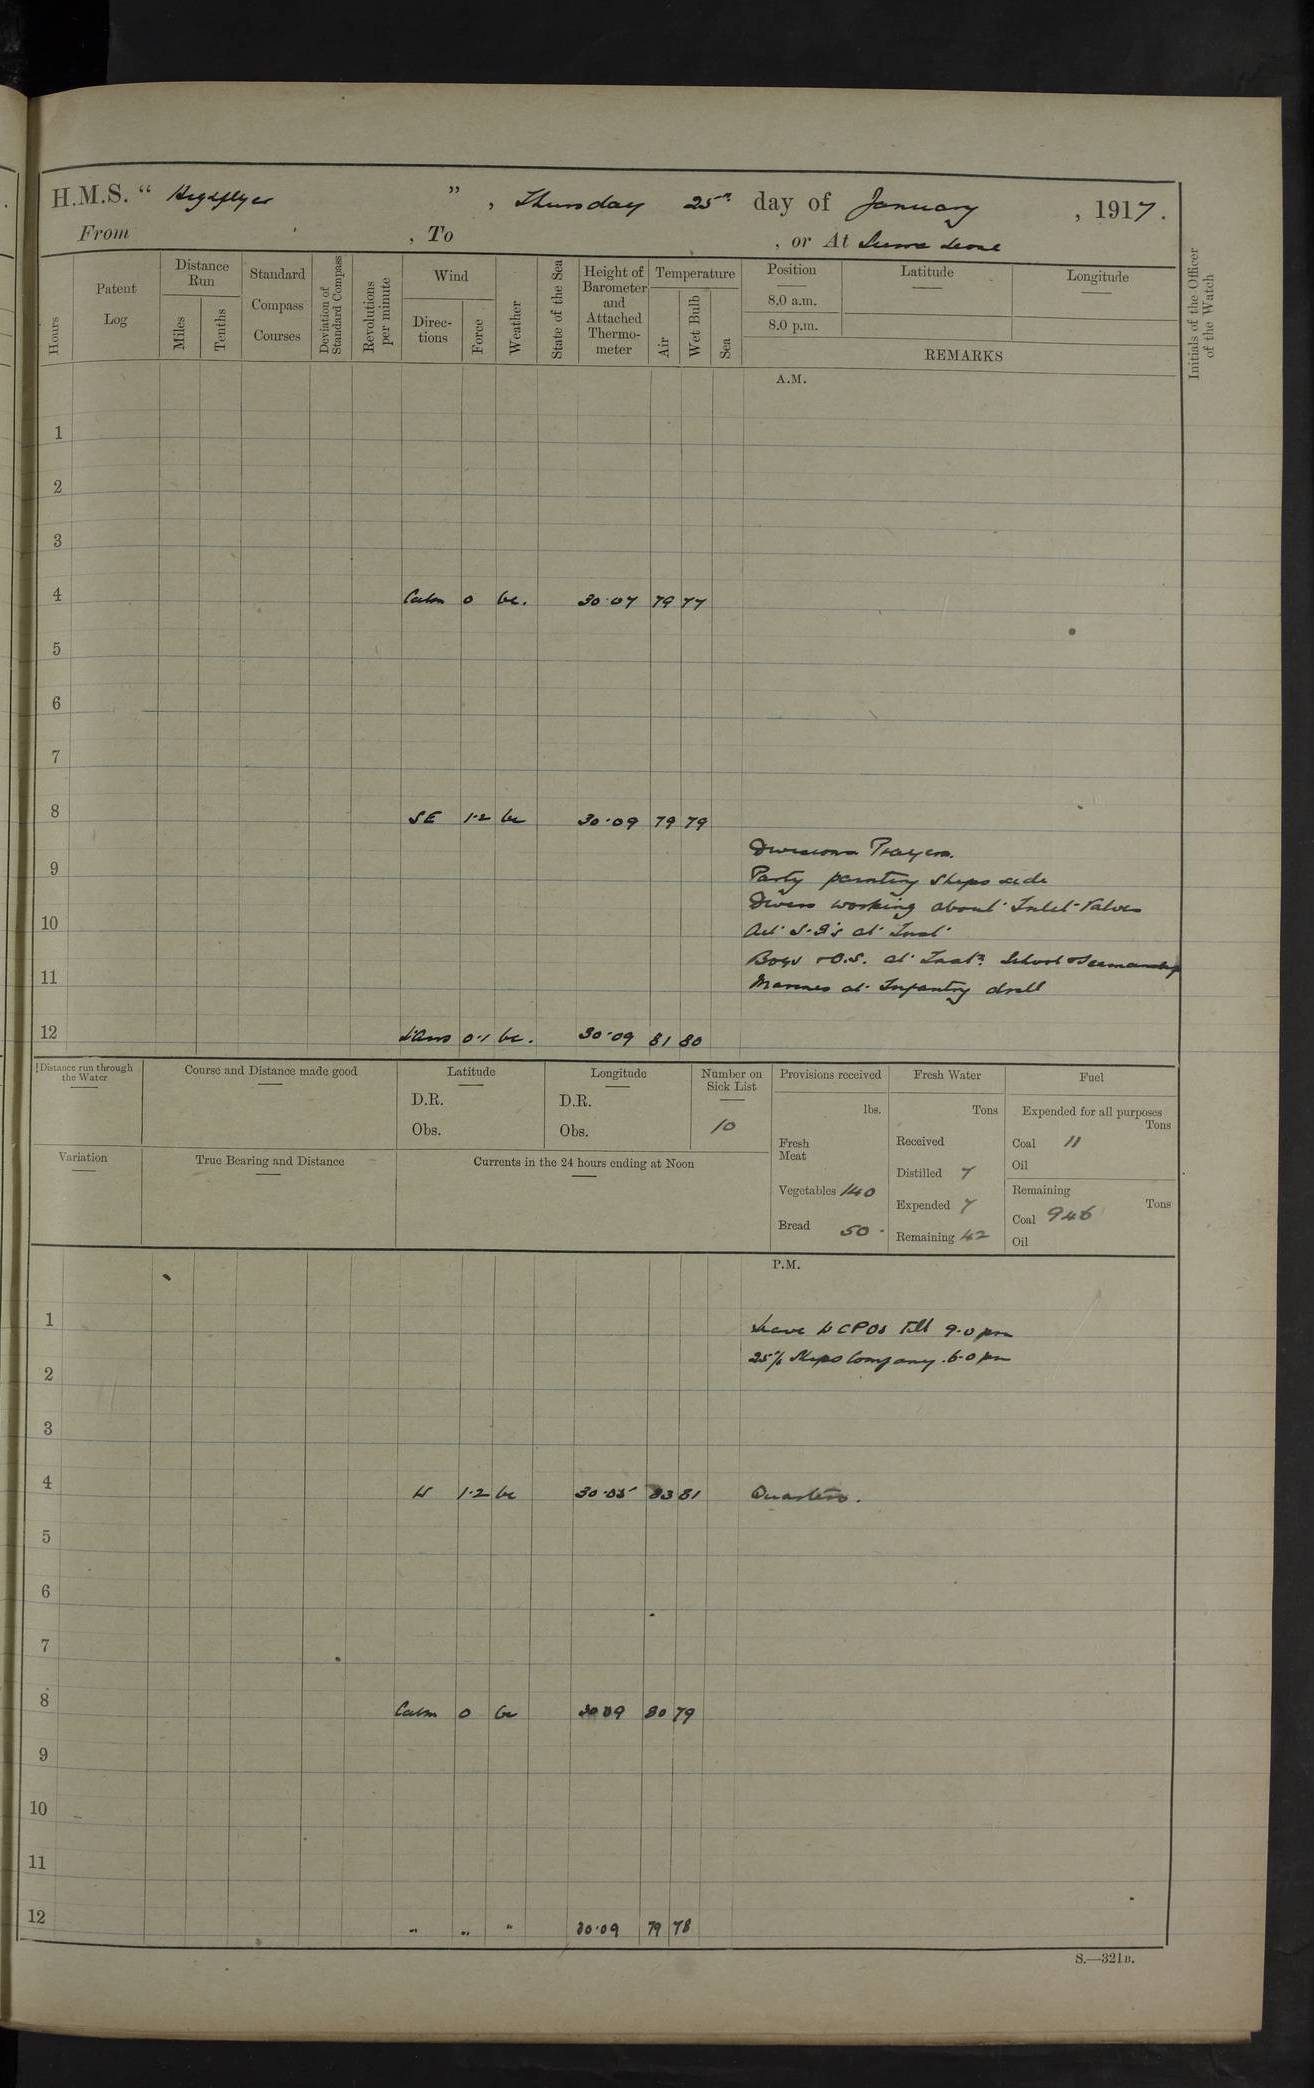 H.M.S. “ Highflyer ” , Thursday 25th day of January , 1917.
From , To , or At Sierra Leone
Hours
Patent Log
Distance Run
Miles
Tenths
Standard Compass Courses
Deviation of Standard Compass
Revolutions per minute
Wind
Directions
Force
Weather
State of the Sea
Height of Barometer and Attached Thermometer
Temperature
Air
Wet Bulb
Sea
Position
8.0 a.m.
8.0 p.m.
Latitude
Longitude
REMARKS
Initials of the Officer of the Watch
A.M.
1
2
3
4 Calm 0 bc. 30.07 79 77
5
6
7
8 SE 1.2 bc 30.09 79 79
Divisions Prayers.
9
Party painting Ships side
Divers working about Inlet Valves
10
S.G's at Inst
Boys & O.S. at Instn. School & Seamanship
11
Marines at Infantry drill
12 L'Airs 0.1 bc. 30.09 81 80
Distance run through the Water
Course and Distance made good
Latitude
D.R.
Obs.
Longitude
D.R.
Obs.
Number on Sick List
10
Provisions received
lbs.
Fresh Meat
Vegetables 140
Bread 50
Fresh Water
Tons
Received
Distilled 7
Expended 7
Remaining 42
Fuel
Expended for all purposes
Tons
Coal 11
Oil
Remaining
Tons
Coal 946
Oil
Variation
True Bearing and Distance
Currents in the 24 hours ending at Noon
P.M.
1
Leave to CPOs till 9.0 pm
25% Ships Company . 6.0 pm
2
3
4 W 1.2 bc 30.05 83 81 Quarters.
5
6
7
8 Calm 0 bc 30 09 80 79
9
10
11
12 " " " 30.09 79 78
S.—321B.